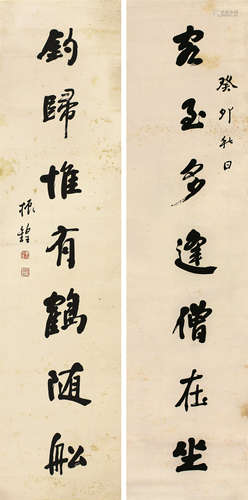 癸卯秋日
客至多逢僧在坐
釣歸惟有鶴隨船